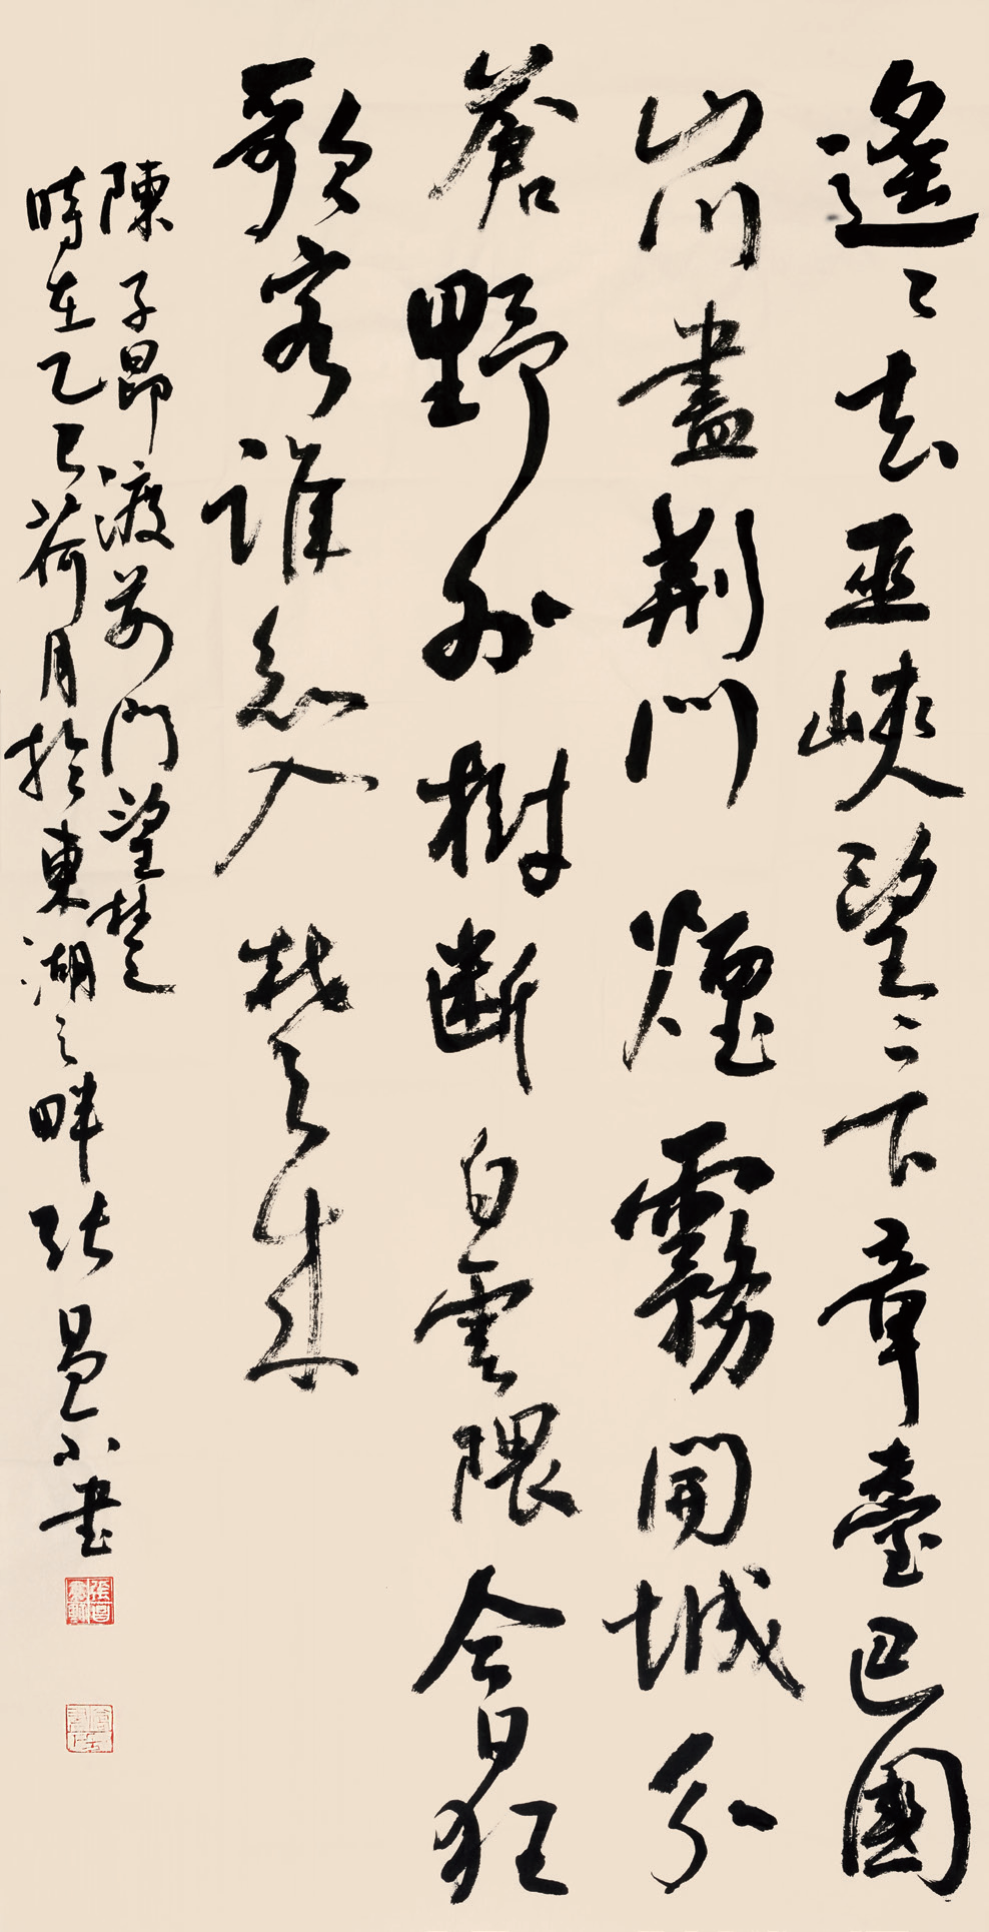 遙〻去巫峽望〻下章臺巴國
山川盡荆門煙霧開城分
蒼野外樹断白雲隈今日狂
歌客誰知入楚來
陳子昂渡荆門望楚
時在乙巳荷月於東湖之畔張㬈小書